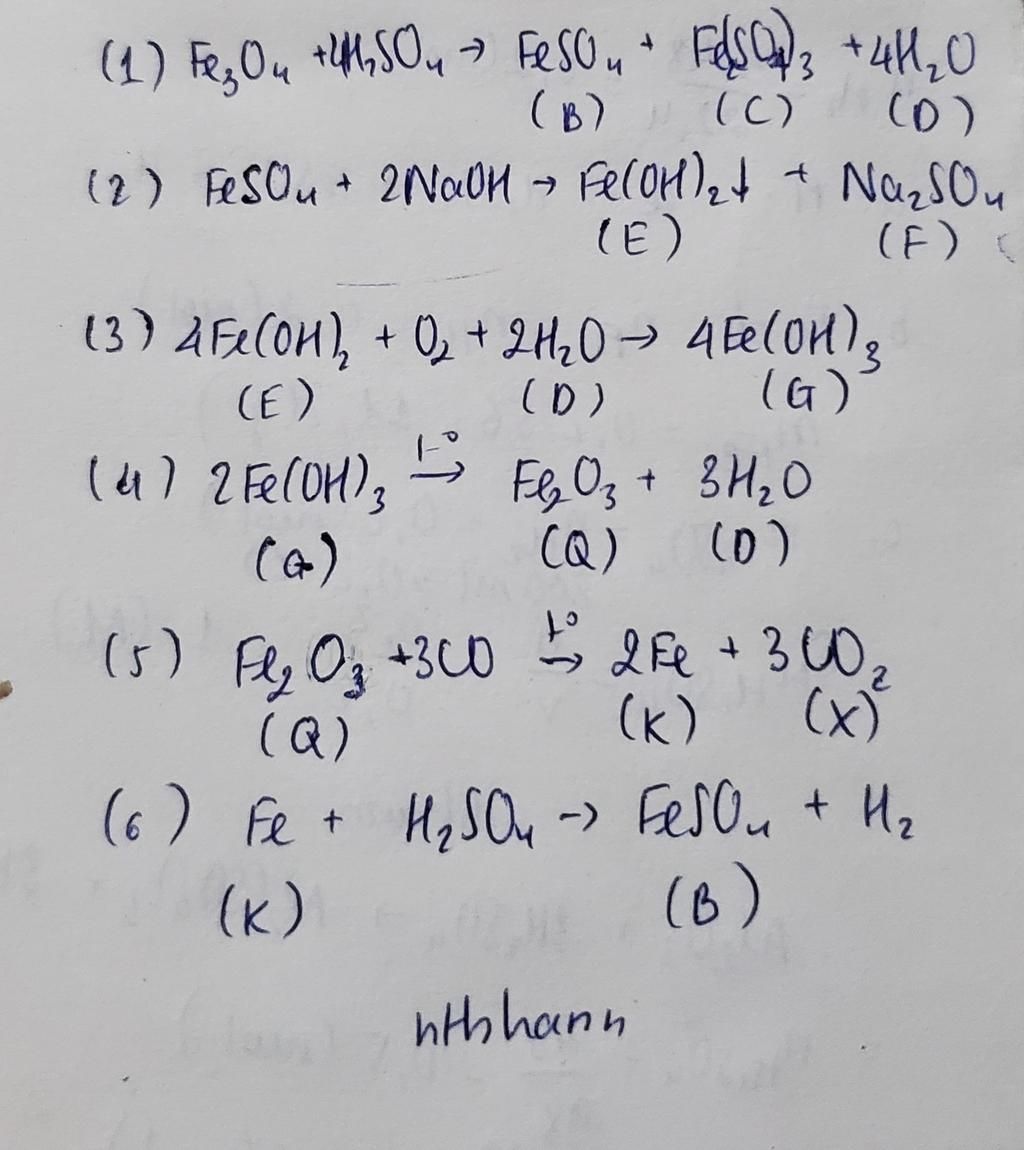 (1) Fe₃O₄ + 4H₂SO₄ → FeSO₄ + Fe₂(SO₄)₃ + 4H₂O
(B) (C) (D)
(2) FeSO₄ + 2NaOH → Fe(OH)₂↓ + Na₂SO₄
(E) (F)
(3) 4Fe(OH)₂ + O₂ + 2H₂O → 4Fe(OH)₃
(E) (D) (G)
(4) 2Fe(OH)₃ t°→ Fe₂O₃ + 3H₂O
(G) (Q) (D)
(5) Fe₂O₃ + 3CO t°→ 2Fe + 3CO₂
(Q) (K) (X)
(6) Fe + H₂SO₄ → FeSO₄ + H₂
(K) (B)